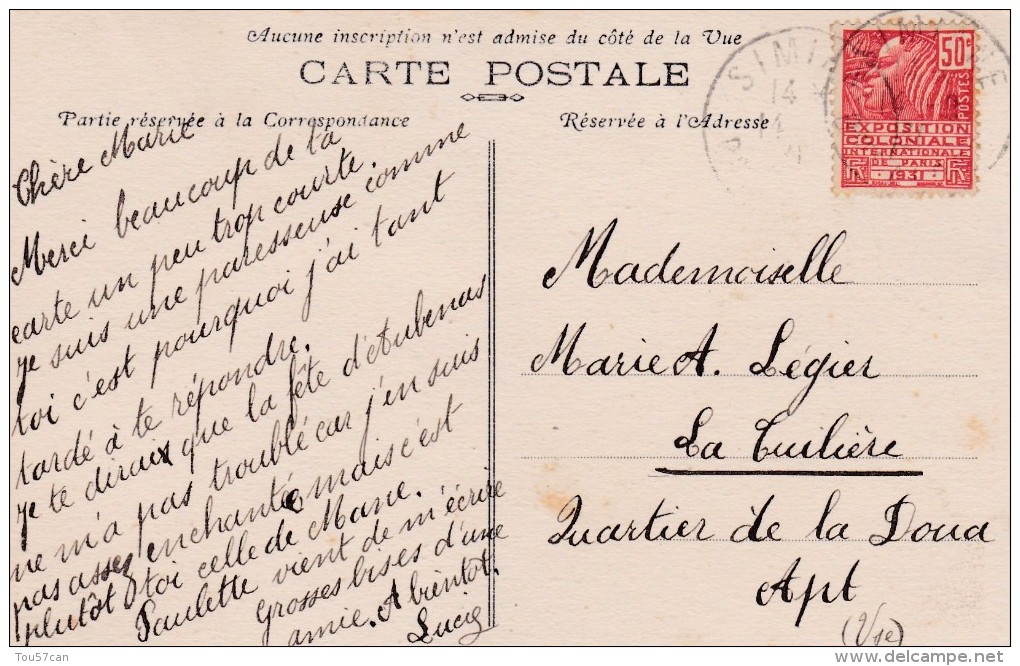 Aucune inscription n'est admise du côté de la Vue
CARTE POSTALE
Partie réservée à la Correspondance
Réservée à l'Adresse
SIMIANE
14
50c
POSTES
EXPOSITION
COLONIALE
INTERNATIONALE
DE PARIS
1931
Chère Marie
Merci beaucoup de ta
carte un peu trop courte.
Je suis une paresseuse comme
toi c'est pourquoi j'ai tant
tardé à te répondre.
Je te diraix que la fête d'Aubenas
ne m'a pas troublé car j'en suis
pas assez enchantée mais c'est
plutôt toi celle de Mane.
Paulette vient de m'écrire
Grosses bises d'une
amie. A bientôt.
Lucie
Mademoiselle
Marie A. Légier
La Tuilière
Quartier de la Doua
Apt
(Vse)
Tou57can
delcampe.net